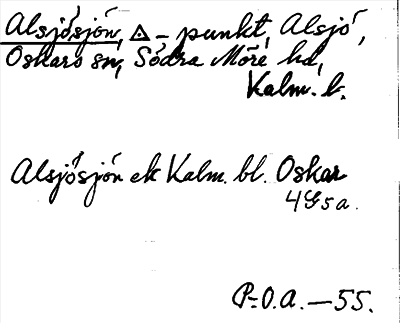 Alsjösjön, △ - punkt, Alsjö,
Oskars sn, Södra Möre hd,
Kalm. l.
Alsjösjön ek Kalm. bl. Oskar
4G5a.
P-O.A. — 55.